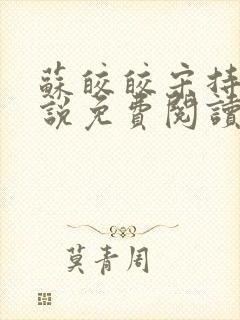 蘇皎皎宋持
說免費閱讀
莫青周